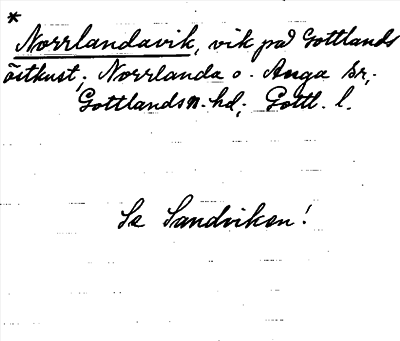 *
Norrlandavik, vik på Gottlands
östkust; Norrlanda o. Anga sr,
Gottlands n. hd; Gottl. l.
Se Sandviken!